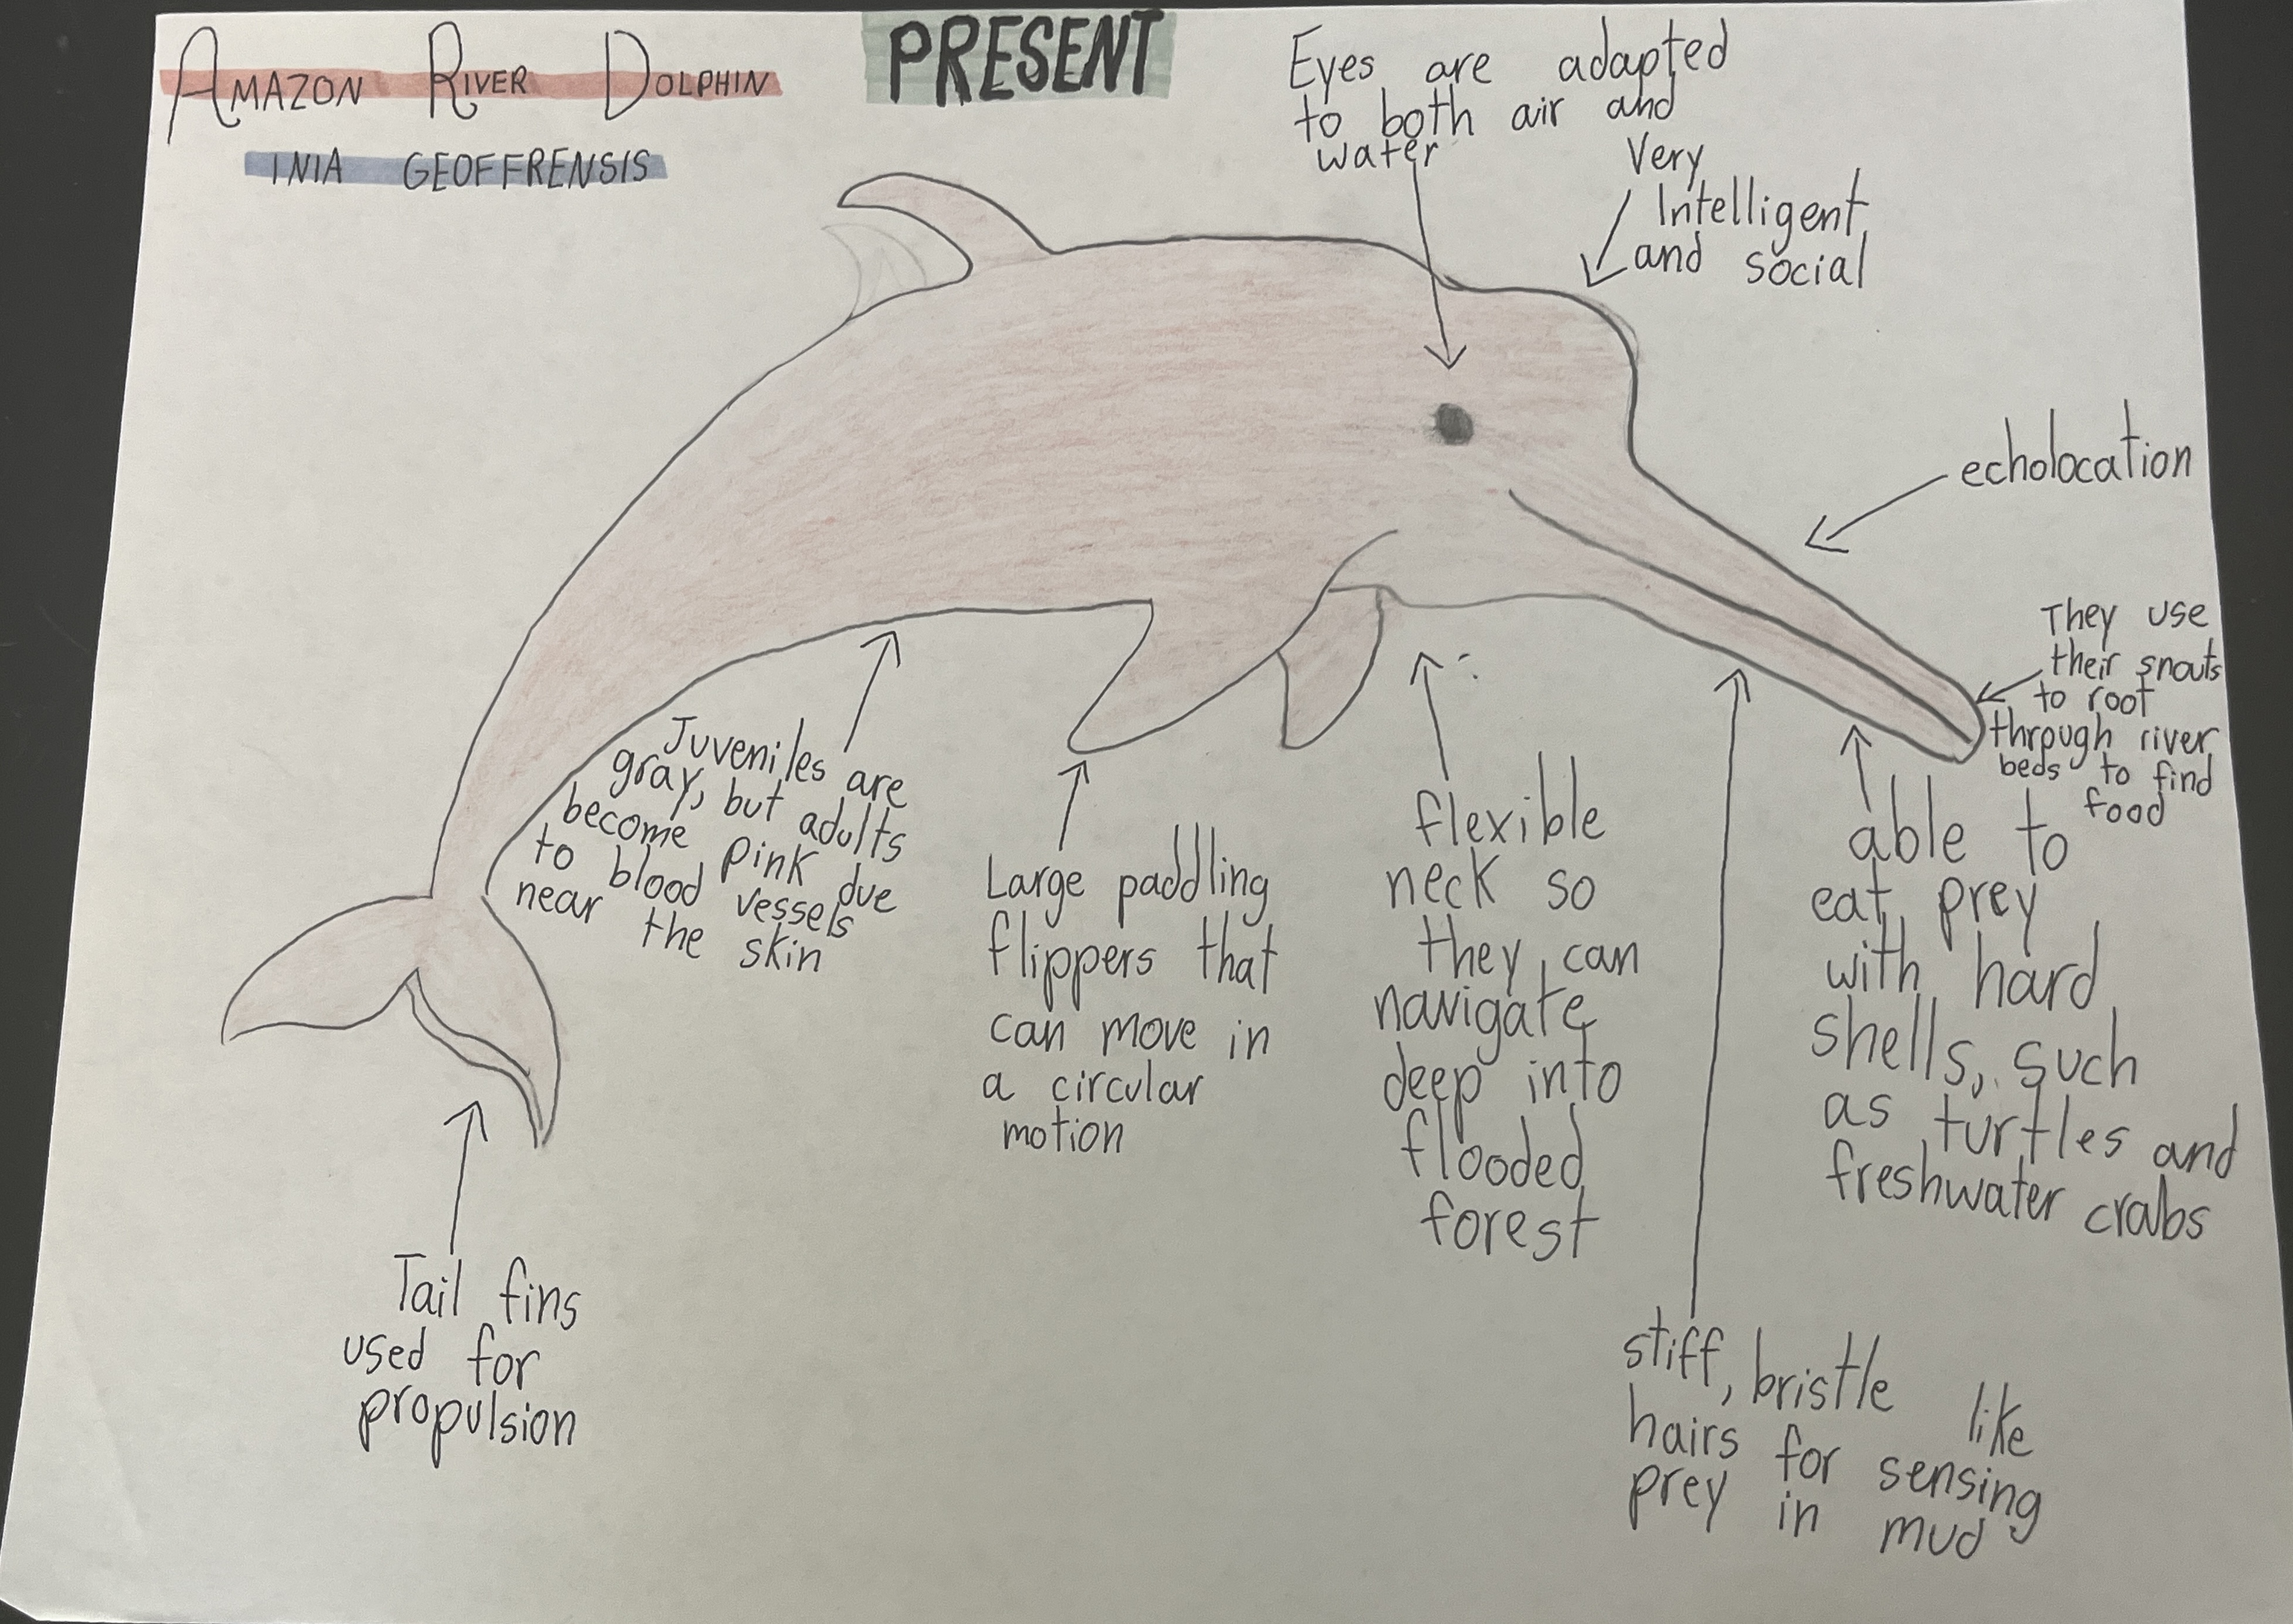 AMAZON RIVER DOLPHIN
INIA GEOFFRENSIS
PRESENT
Eyes are adapted
to both air and
water
Very
Intelligent
and social
echolocation
They use
their snouts
to root
through river
beds to find
food
Juveniles are
gray, but adults
become pink due
to blood vessels
near the skin
Large paddling
flippers that
can move in
a circular
motion
flexible
neck so
they can
navigate
deep into
flooded
forest
able to
eat prey
with hard
shells, such
as turtles and
freshwater crabs
Tail fins
used for
propulsion
stiff, bristle like
hairs for sensing
prey in mud